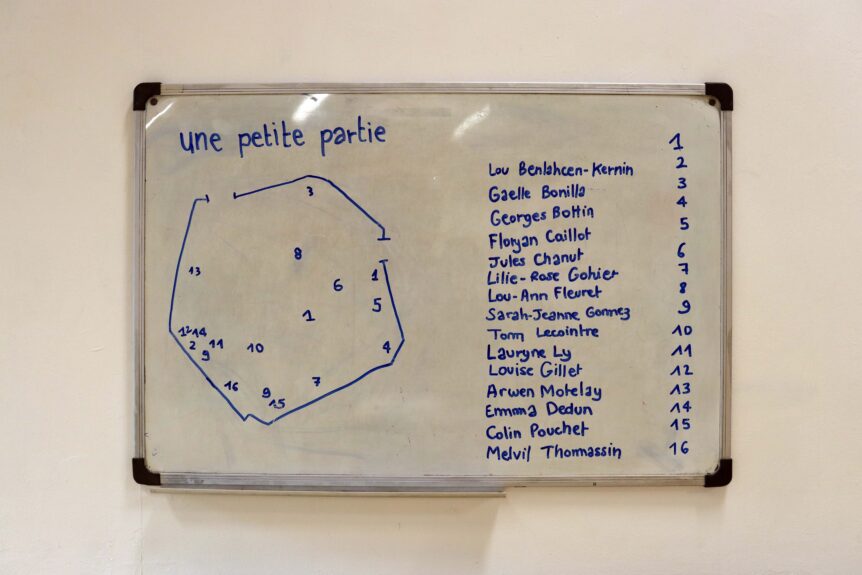 une petite partie
3
8
13
1
6
5
1
12 14
2 11
9
10
4
7
16
9
15
1
Lou Benlahcen-Kernin 2
Gaelle Bonilla 3
Georges Bottin 4
Floryan Caillot 5
Jules Chanut 6
Lilie-Rose Gohier 7
Lou-Ann Fleuret 8
Sarah-Jeanne Gomez 9
Tom Lecointre 10
Lauryne Ly 11
Louise Gillet 12
Arwen Motelay 13
Emma Dedun 14
Colin Pouchet 15
Melvil Thomassin 16